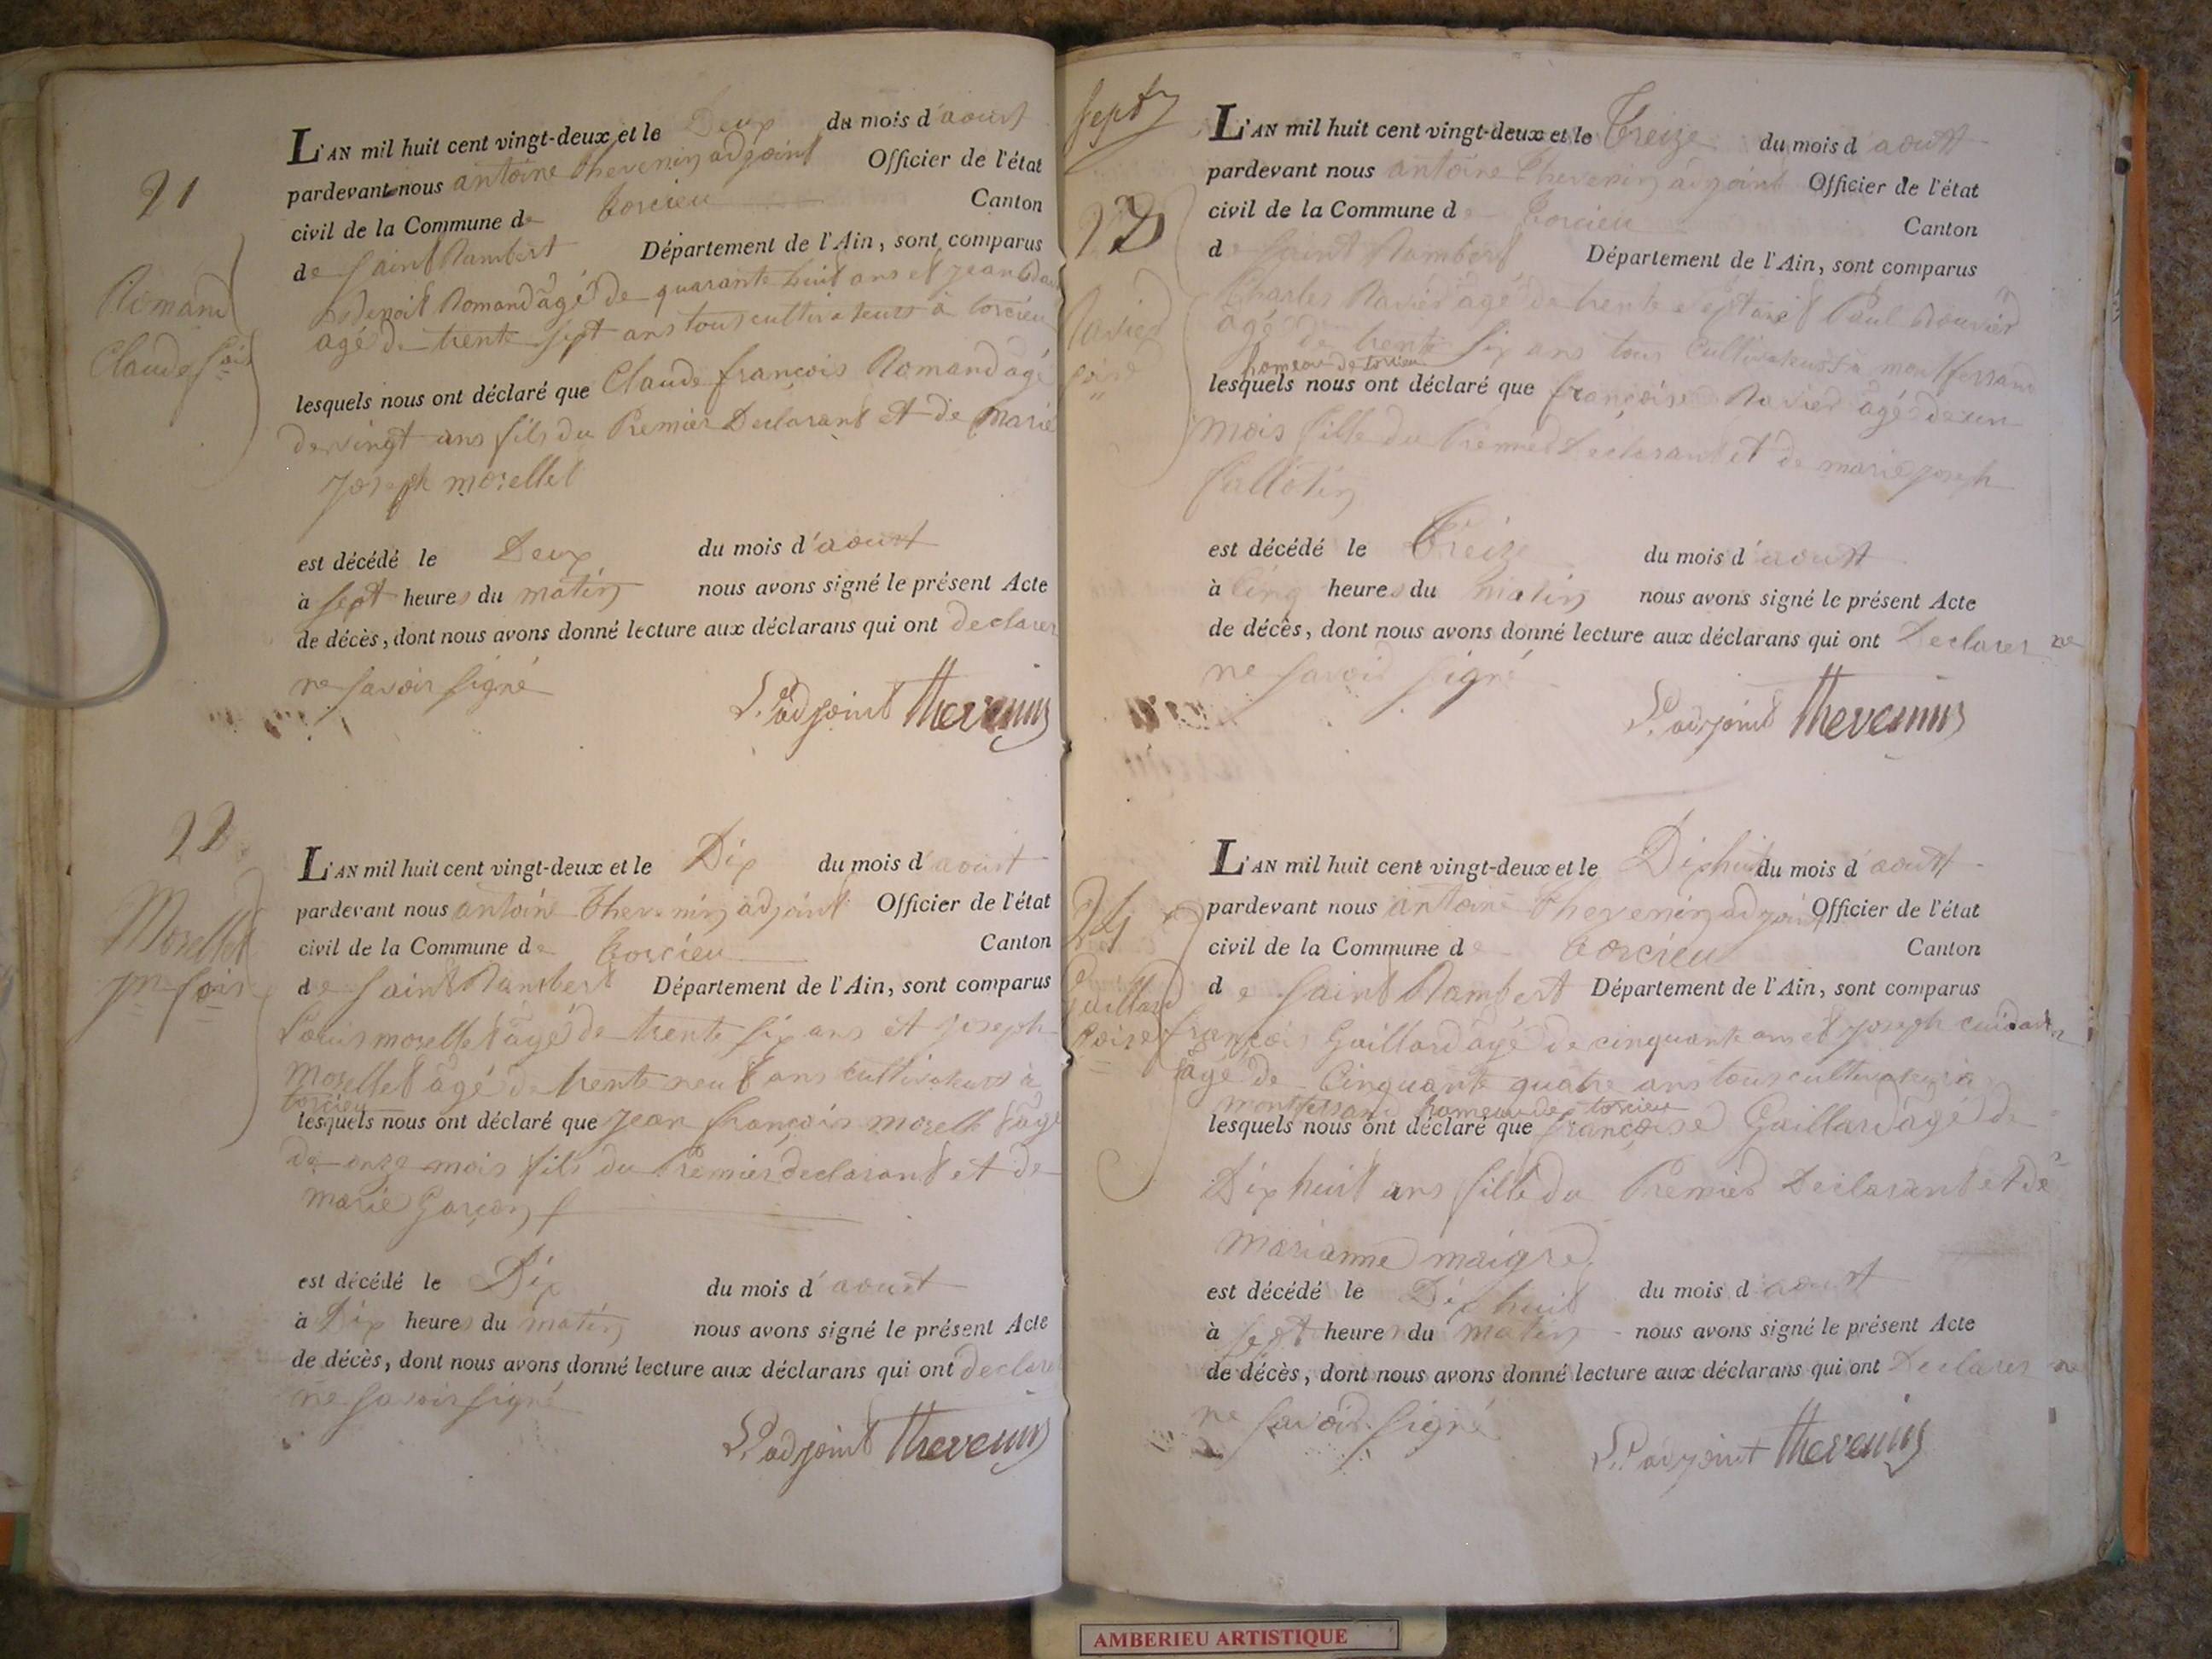 21
Romand
Claude fois
L'AN mil huit cent vingt-deux et le Deux du mois d'aoust
pardevant nous antoine thevenin adjoint Officier de l'état
civil de la Commune de torcieu Canton
de saint Rambert Département de l'Ain, sont comparus
Benoit Romand agé de quarante huit ans et jean
agé de trente sept ans tous cultivateurs à torcieu
lesquels nous ont déclaré que Claude françois Romand agé
de vingt ans fils du Premier Declarant et de marie
joseph morellet
est décédé le Deux du mois d'aoust
à sept heures du matin nous avons signé le présent Acte
de décès, dont nous avons donné lecture aux déclarans qui ont declarer
ne savoir signé
L'adjoint thevenin
22
Morellet
jn fois
L'AN mil huit cent vingt-deux et le Dix du mois d'aoust
pardevant nous antoine thevenin adjoint Officier de l'état
civil de la Commune de torcieu Canton
de saint Rambert Département de l'Ain, sont comparus
Louis morellet agé de trente six ans et joseph
morellet agé de trente neuf ans cultivateurs à
torcieu
lesquels nous ont déclaré que jean françois morellet agé
de onze mois fils du Premier declarant et de
marie Garçon
est décédé le Dix du mois d'aoust
à Dix heures du matin nous avons signé le présent Acte
de décès, dont nous avons donné lecture aux déclarans qui ont declarer
ne savoir signé
L'adjoint thevenin
sept
23
Navier
foise
L'AN mil huit cent vingt-deux et le Treize du mois d'aoust
pardevant nous antoine thevenin adjoint Officier de l'état
civil de la Commune de torcieu Canton
de saint Rambert Département de l'Ain, sont comparus
Charles Navier agé de trente sept ans et Paul Bouvier
agé de trente six ans tous cultivateurs à montferrand
hameau de torcieu
lesquels nous ont déclaré que françoise Navier agé de un
mois fille du Premier Declarant et de marie joseph
est décédé le Treize du mois d'aoust
à Cinq heures du matin nous avons signé le présent Acte
de décès, dont nous avons donné lecture aux déclarans qui ont Declarer ne
ne savoir signé
L'adjoint thevenin
24
Gaillard
foise
L'AN mil huit cent vingt-deux et le Dix huit du mois d'aoust
pardevant nous antoine thevenin adjoint Officier de l'état
civil de la Commune de torcieu Canton
de saint Rambert Département de l'Ain, sont comparus
françois Gaillard agé de cinquante ans et joseph
agé de Cinquante quatre ans tous cultivateurs à
montferrand hameau de torcieu
lesquels nous ont déclaré que françoise Gaillard agé de
Dix huit ans fille du Premier Declarant et de
marianne maigre
est décédé le Dix huit du mois d'aoust
à sept heures du matin nous avons signé le présent Acte
de décès, dont nous avons donné lecture aux déclarans qui ont Declarer ne
ne savoir signé
L'adjoint thevenin
AMBERIEU ARTISTIQUE